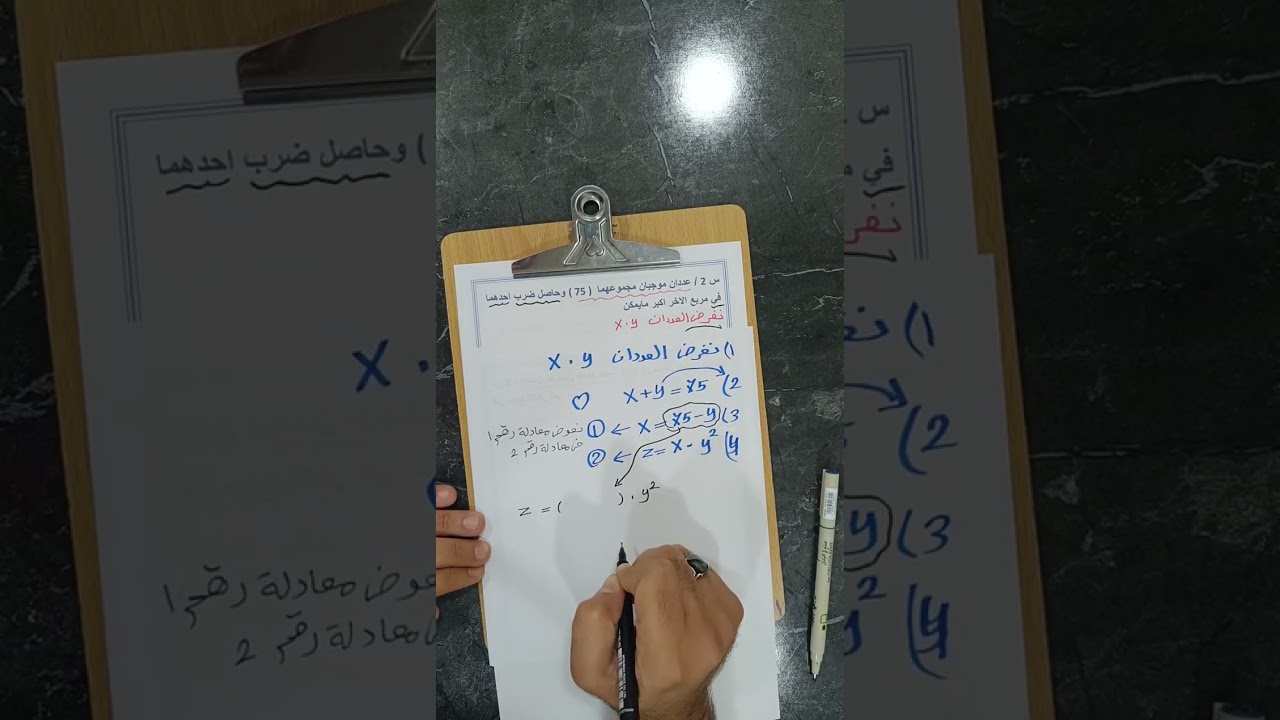 س 2 / عددان موجبان مجموعهما ( 75 ) وحاصل ضرب احدهما
في مربع الاخر اكبر مايمكن
نفرض العددان x . y
1) نفرض العددان x . y
2) x + y = 75
3) x = 75 - y ← ① نعوض معادلة رقم 1
4) z = x - y² ← ② في معادلة رقم 2
z = (         ) . y²